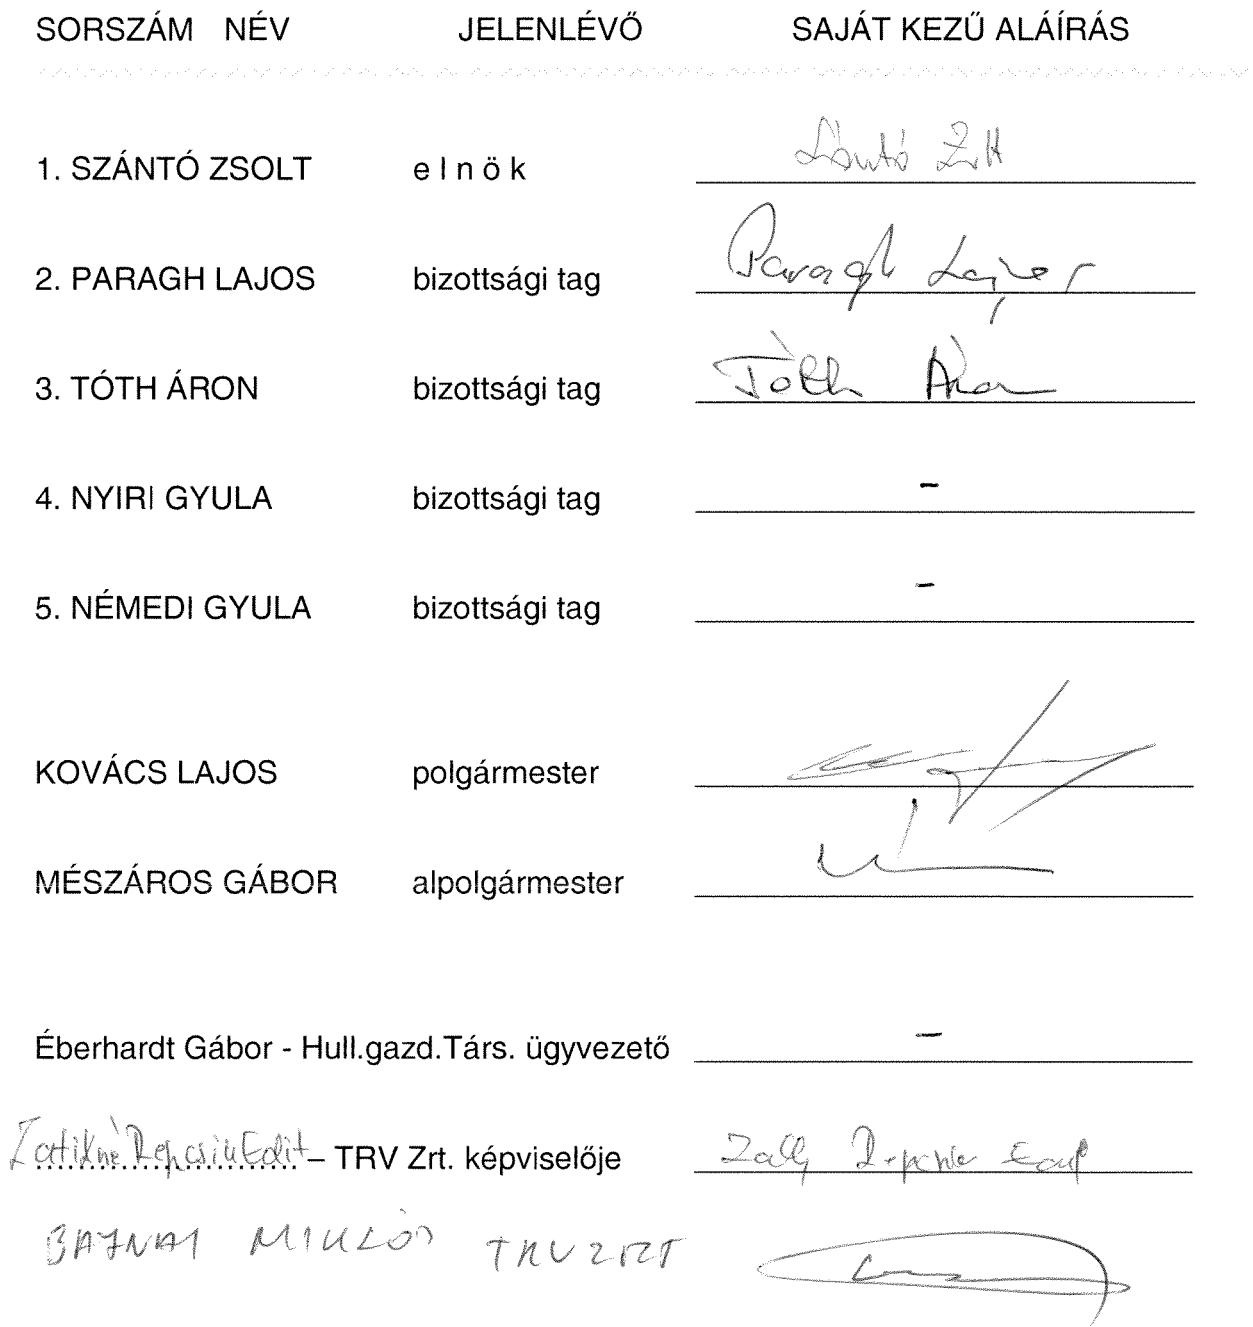 SORSZÁM NÉV JELENLÉVŐ SAJÁT KEZŰ ALÁÍRÁS
1. SZÁNTÓ ZSOLT elnök Szántó Zsolt
2. PARAGH LAJOS bizottsági tag Paragh Lajos
3. TÓTH ÁRON bizottsági tag Tóth Áron
4. NYIRI GYULA bizottsági tag -
5. NÉMEDI GYULA bizottsági tag -
KOVÁCS LAJOS polgármester
MÉSZÁROS GÁBOR alpolgármester
Éberhardt Gábor - Hull.gazd.Társ. ügyvezető -
Repcsin Edit – TRV Zrt. képviselője
BAJNAI MIKLÓS TRV ZRT